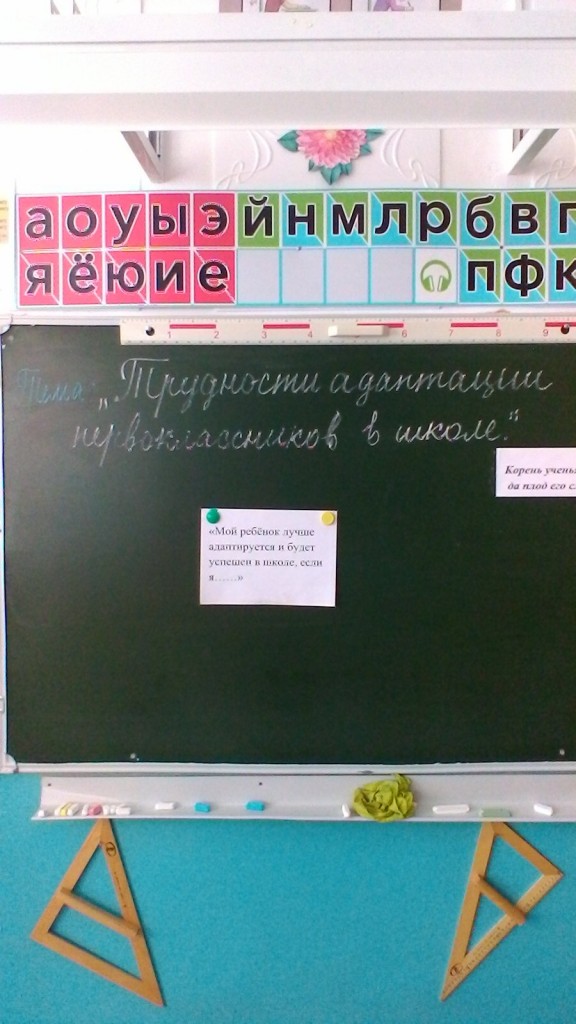 а о у ы э й н м л р б в г
я ё ю и е п ф к
1 2 3 4 5 6 7 8 9
Тема: „Трудности адаптации
первоклассников в школе."
Корень ученья
да плод его сл
«Мой ребёнок лучше
адаптируется и будет
успешен в школе, если
я……»